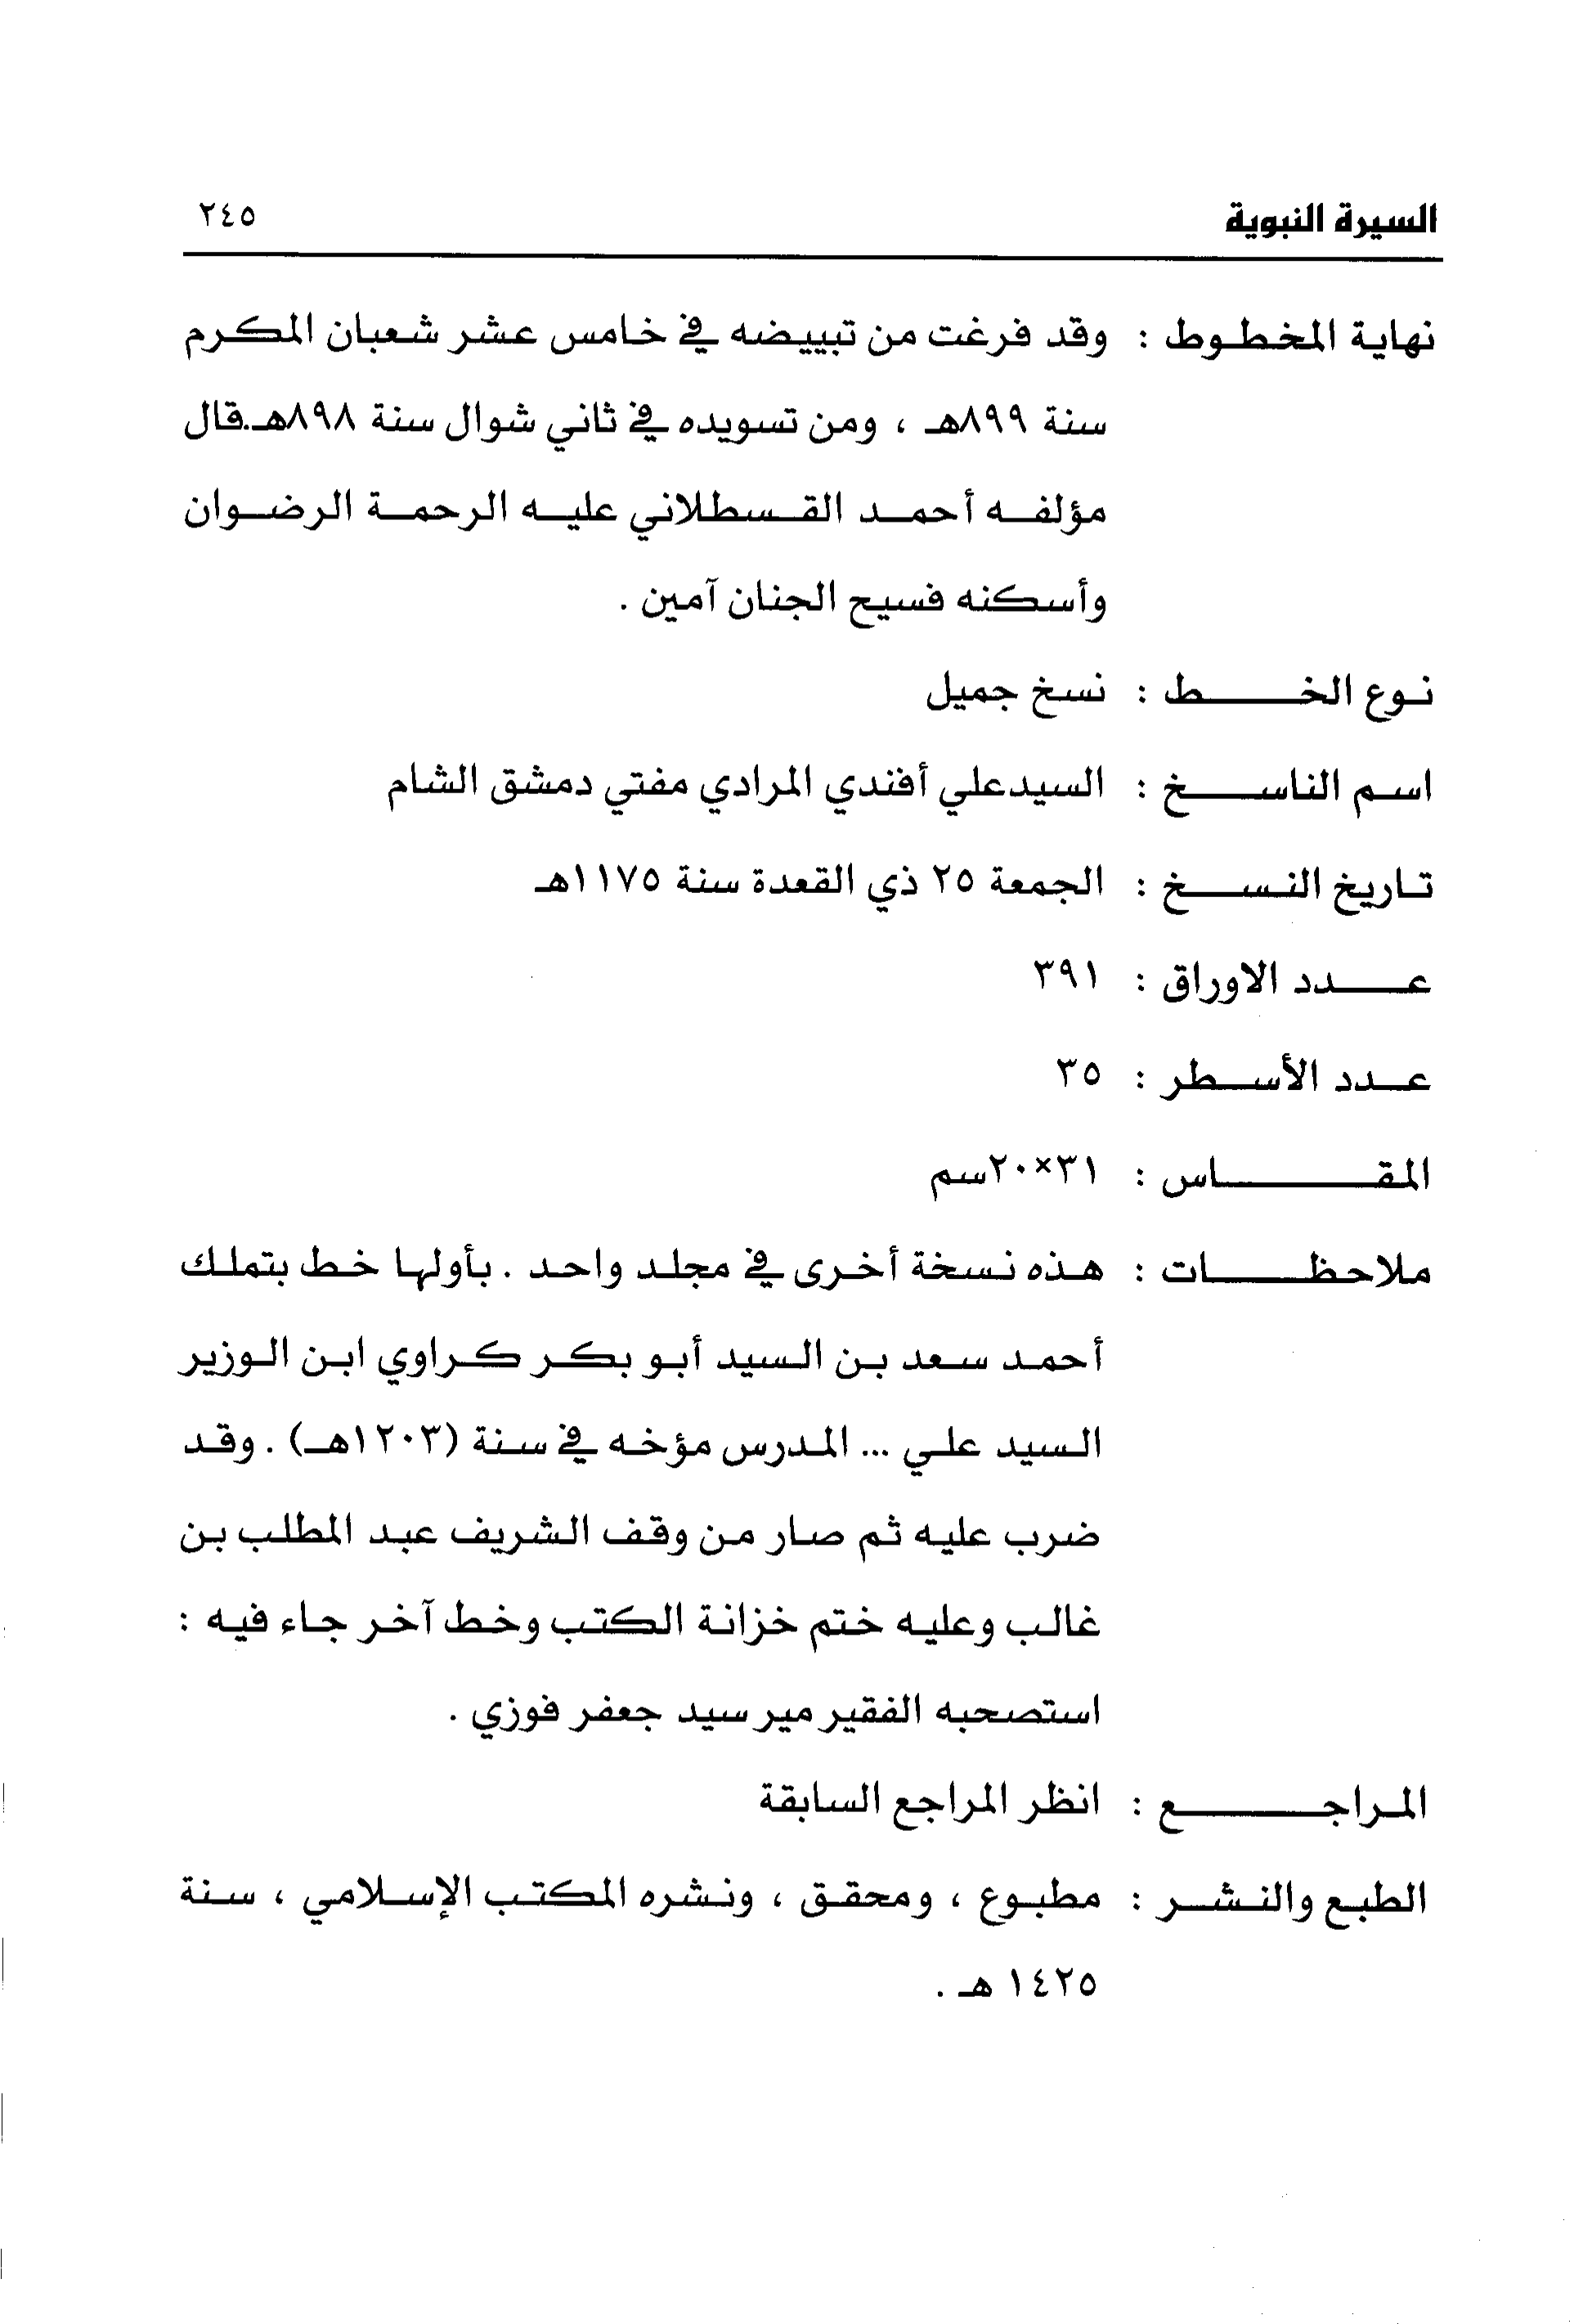 السيرة النبوية ٢٤٥
نهاية المخطوط : وقد فرغت من تبييضه في خامس عشر شعبان المكرم
سنة ٨٩٩هـ ، ومن تسويده في ثاني شوال سنة ٨٩٨هـ.قال
مؤلفه أحمد القسطلاني عليه الرحمة الرضوان
وأسكنه فسيح الجنان آمين .
نوع الخط : نسخ جميل
اسم الناسخ : السيدعلي أفندي المرادي مفتي دمشق الشام
تاريخ النسخ : الجمعة ٢٥ ذي القعدة سنة ١١٧٥هـ
عدد الاوراق : ٣٩١
عدد الأسطر : ٣٥
المقاس : ٣١×٢٠سم
ملاحظات : هذه نسخة أخرى في مجلد واحد . بأولها خط بتملك
أحمد سعد بن السيد أبو بكر كراوي ابن الوزير
السيد علي ... المدرس مؤخه في سنة (١٢٠٣هـ) . وقد
ضرب عليه ثم صار من وقف الشريف عبد المطلب بن
غالب وعليه ختم خزانة الكتب وخط آخر جاء فيه :
استصحبه الفقير مير سيد جعفر فوزي .
المراجع : انظر المراجع السابقة
الطبع والنشر : مطبوع ، ومحقق ، ونشره المكتب الإسلامي ، سنة
١٤٢٥ هـ .